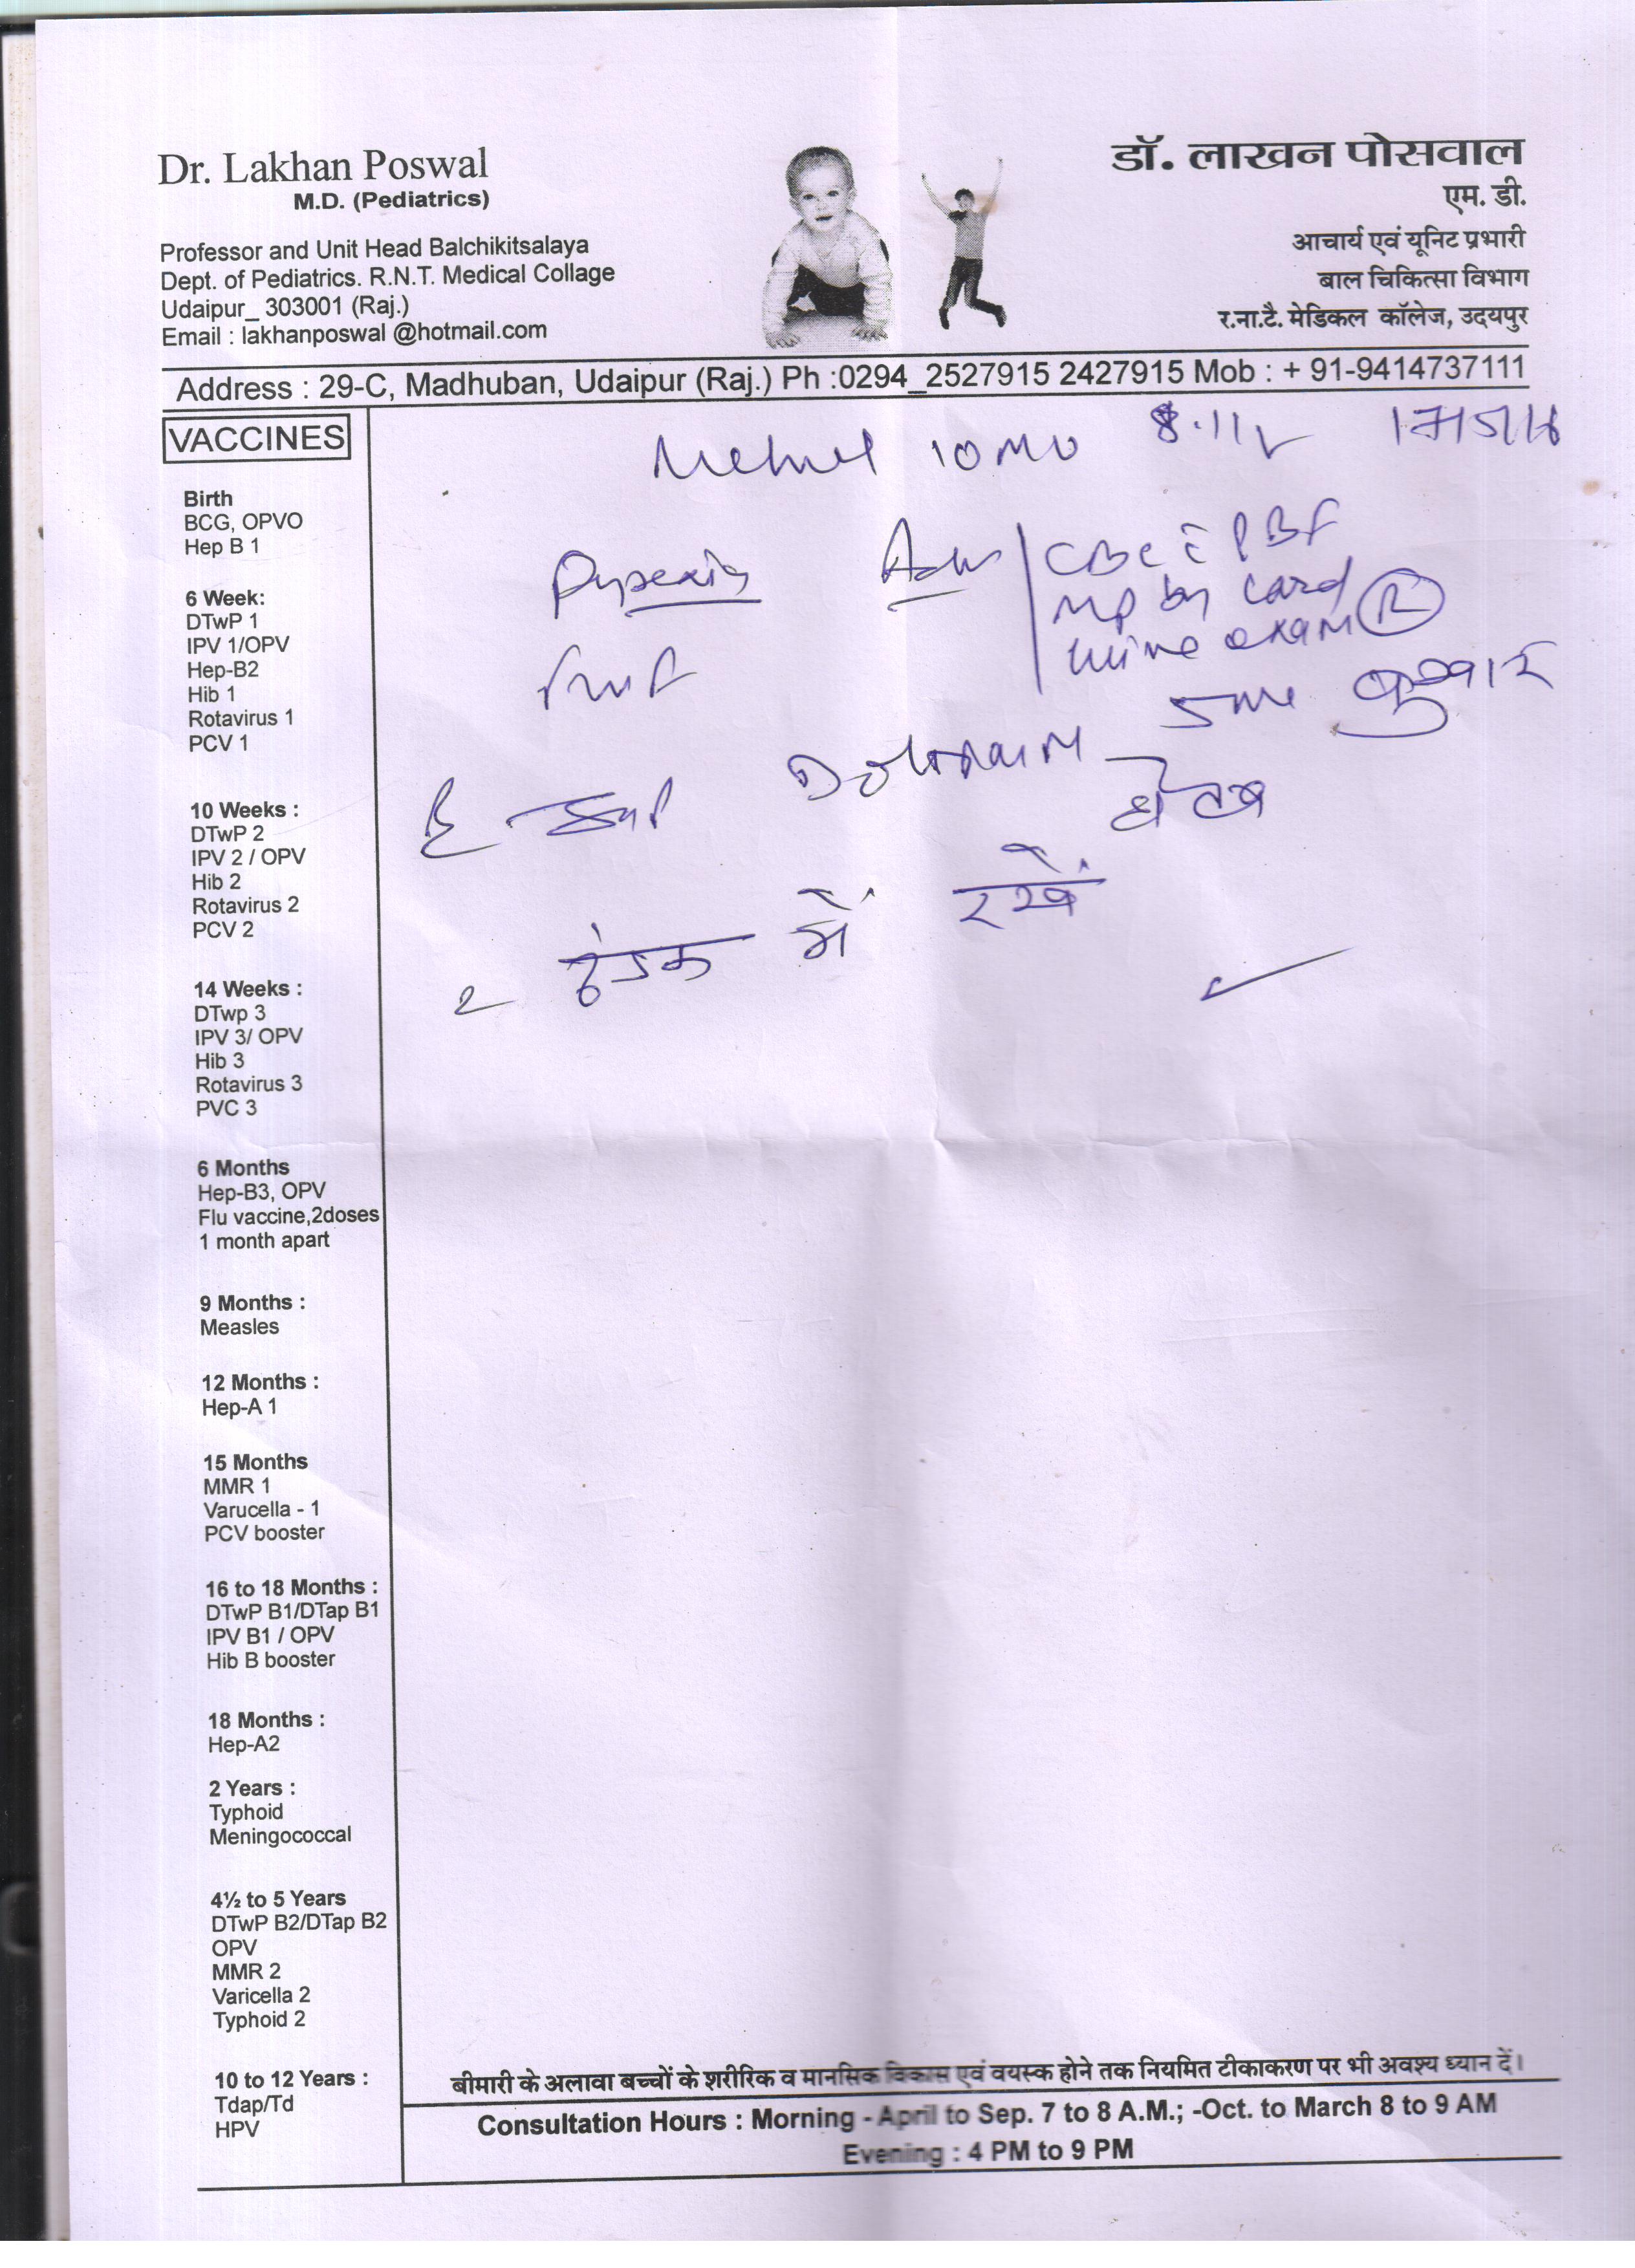 Dr. Lakhan Poswal
M.D. (Pediatrics)
Professor and Unit Head Balchikitsalaya
Dept. of Pediatrics. R.N.T. Medical Collage
Udaipur_ 303001 (Raj.)
Email : lakhanposwal @hotmail.com
डॉ. लाखन पोसवाल
एम. डी.
आचार्य एवं यूनिट प्रभारी
बाल चिकित्सा विभाग
र.ना.टै. मेडिकल कॉलेज, उदयपुर
Address : 29-C, Madhuban, Udaipur (Raj.) Ph :0294_2527915 2427915 Mob : + 91-9414737111
VACCINES
Birth
BCG, OPVO
Hep B 1
6 Week:
DTwP 1
IPV 1/OPV
Hep-B2
Hib 1
Rotavirus 1
PCV 1
10 Weeks :
DTwP 2
IPV 2 / OPV
Hib 2
Rotavirus 2
PCV 2
14 Weeks :
DTwp 3
IPV 3/ OPV
Hib 3
Rotavirus 3
PVC 3
6 Months
Hep-B3, OPV
Flu vaccine,2doses
1 month apart
9 Months :
Measles
12 Months :
Hep-A 1
15 Months
MMR 1
Varucella - 1
PCV booster
16 to 18 Months :
DTwP B1/DTap B1
IPV B1 / OPV
Hib B booster
18 Months :
Hep-A2
2 Years :
Typhoid
Meningococcal
4½ to 5 Years
DTwP B2/DTap B2
OPV
MMR 2
Varicella 2
Typhoid 2
10 to 12 Years :
Tdap/Td
HPV
10 mo
Pyrexia
Adv CBC c̄ PBF
MP by card
urine exam R
5ml बुखार
हो तब
ठंडक में रखें
बीमारी के अलावा बच्चों के शरीरिक व मानसिक विकास एवं वयस्क होने तक नियमित टीकाकरण पर भी अवश्य ध्यान दें।
Consultation Hours : Morning - April to Sep. 7 to 8 A.M.; -Oct. to March 8 to 9 AM
Evening : 4 PM to 9 PM